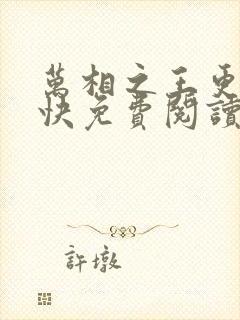 萬相之王更
快免費閱讀
許墩